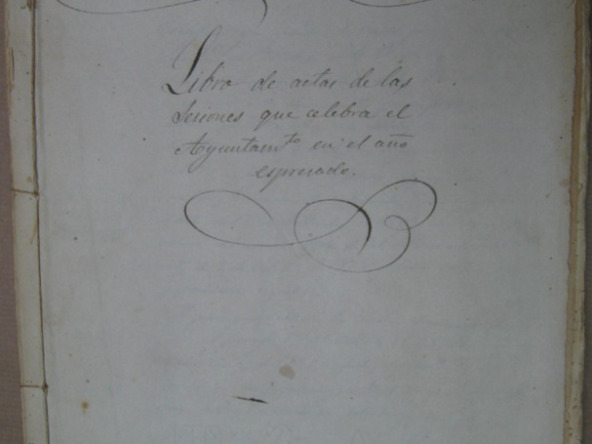 Libro de actas de las
Sesiones que celebra el
Ayuntamto en el año
espresado.